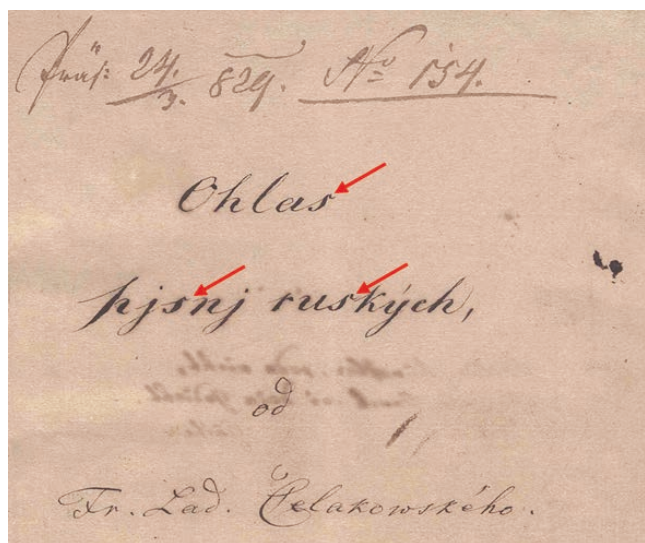 Präs: 24./3. 829. No 154.
Ohlas
pjsnj ruských,
od
Fr. Lad. Čelakowského.